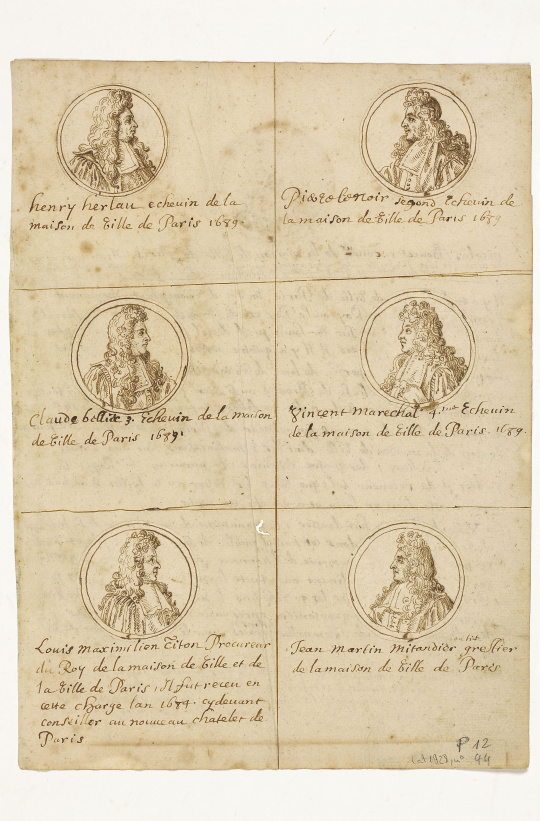 henry herlau echevin de la
maison de Ville de Paris 1689.
lenoir second Echevin de
la maison de Ville de Paris 1689
Claude 3. Echevin de la maison
de Ville de Paris 1689.
Vincent Marechal 4.me Echevin
de la maison de Ville de Paris. 1689.
Louis Maximilien Titon Procureur
du Roy de la maison de Ville et de
la Ville de Paris il fut receu en
cette charge lan 1684. cydevant
conseiller au nouveau châtelet de
Paris
Jean Martin Mitandier greffier
de la maison de Ville de Paris
P 12
44